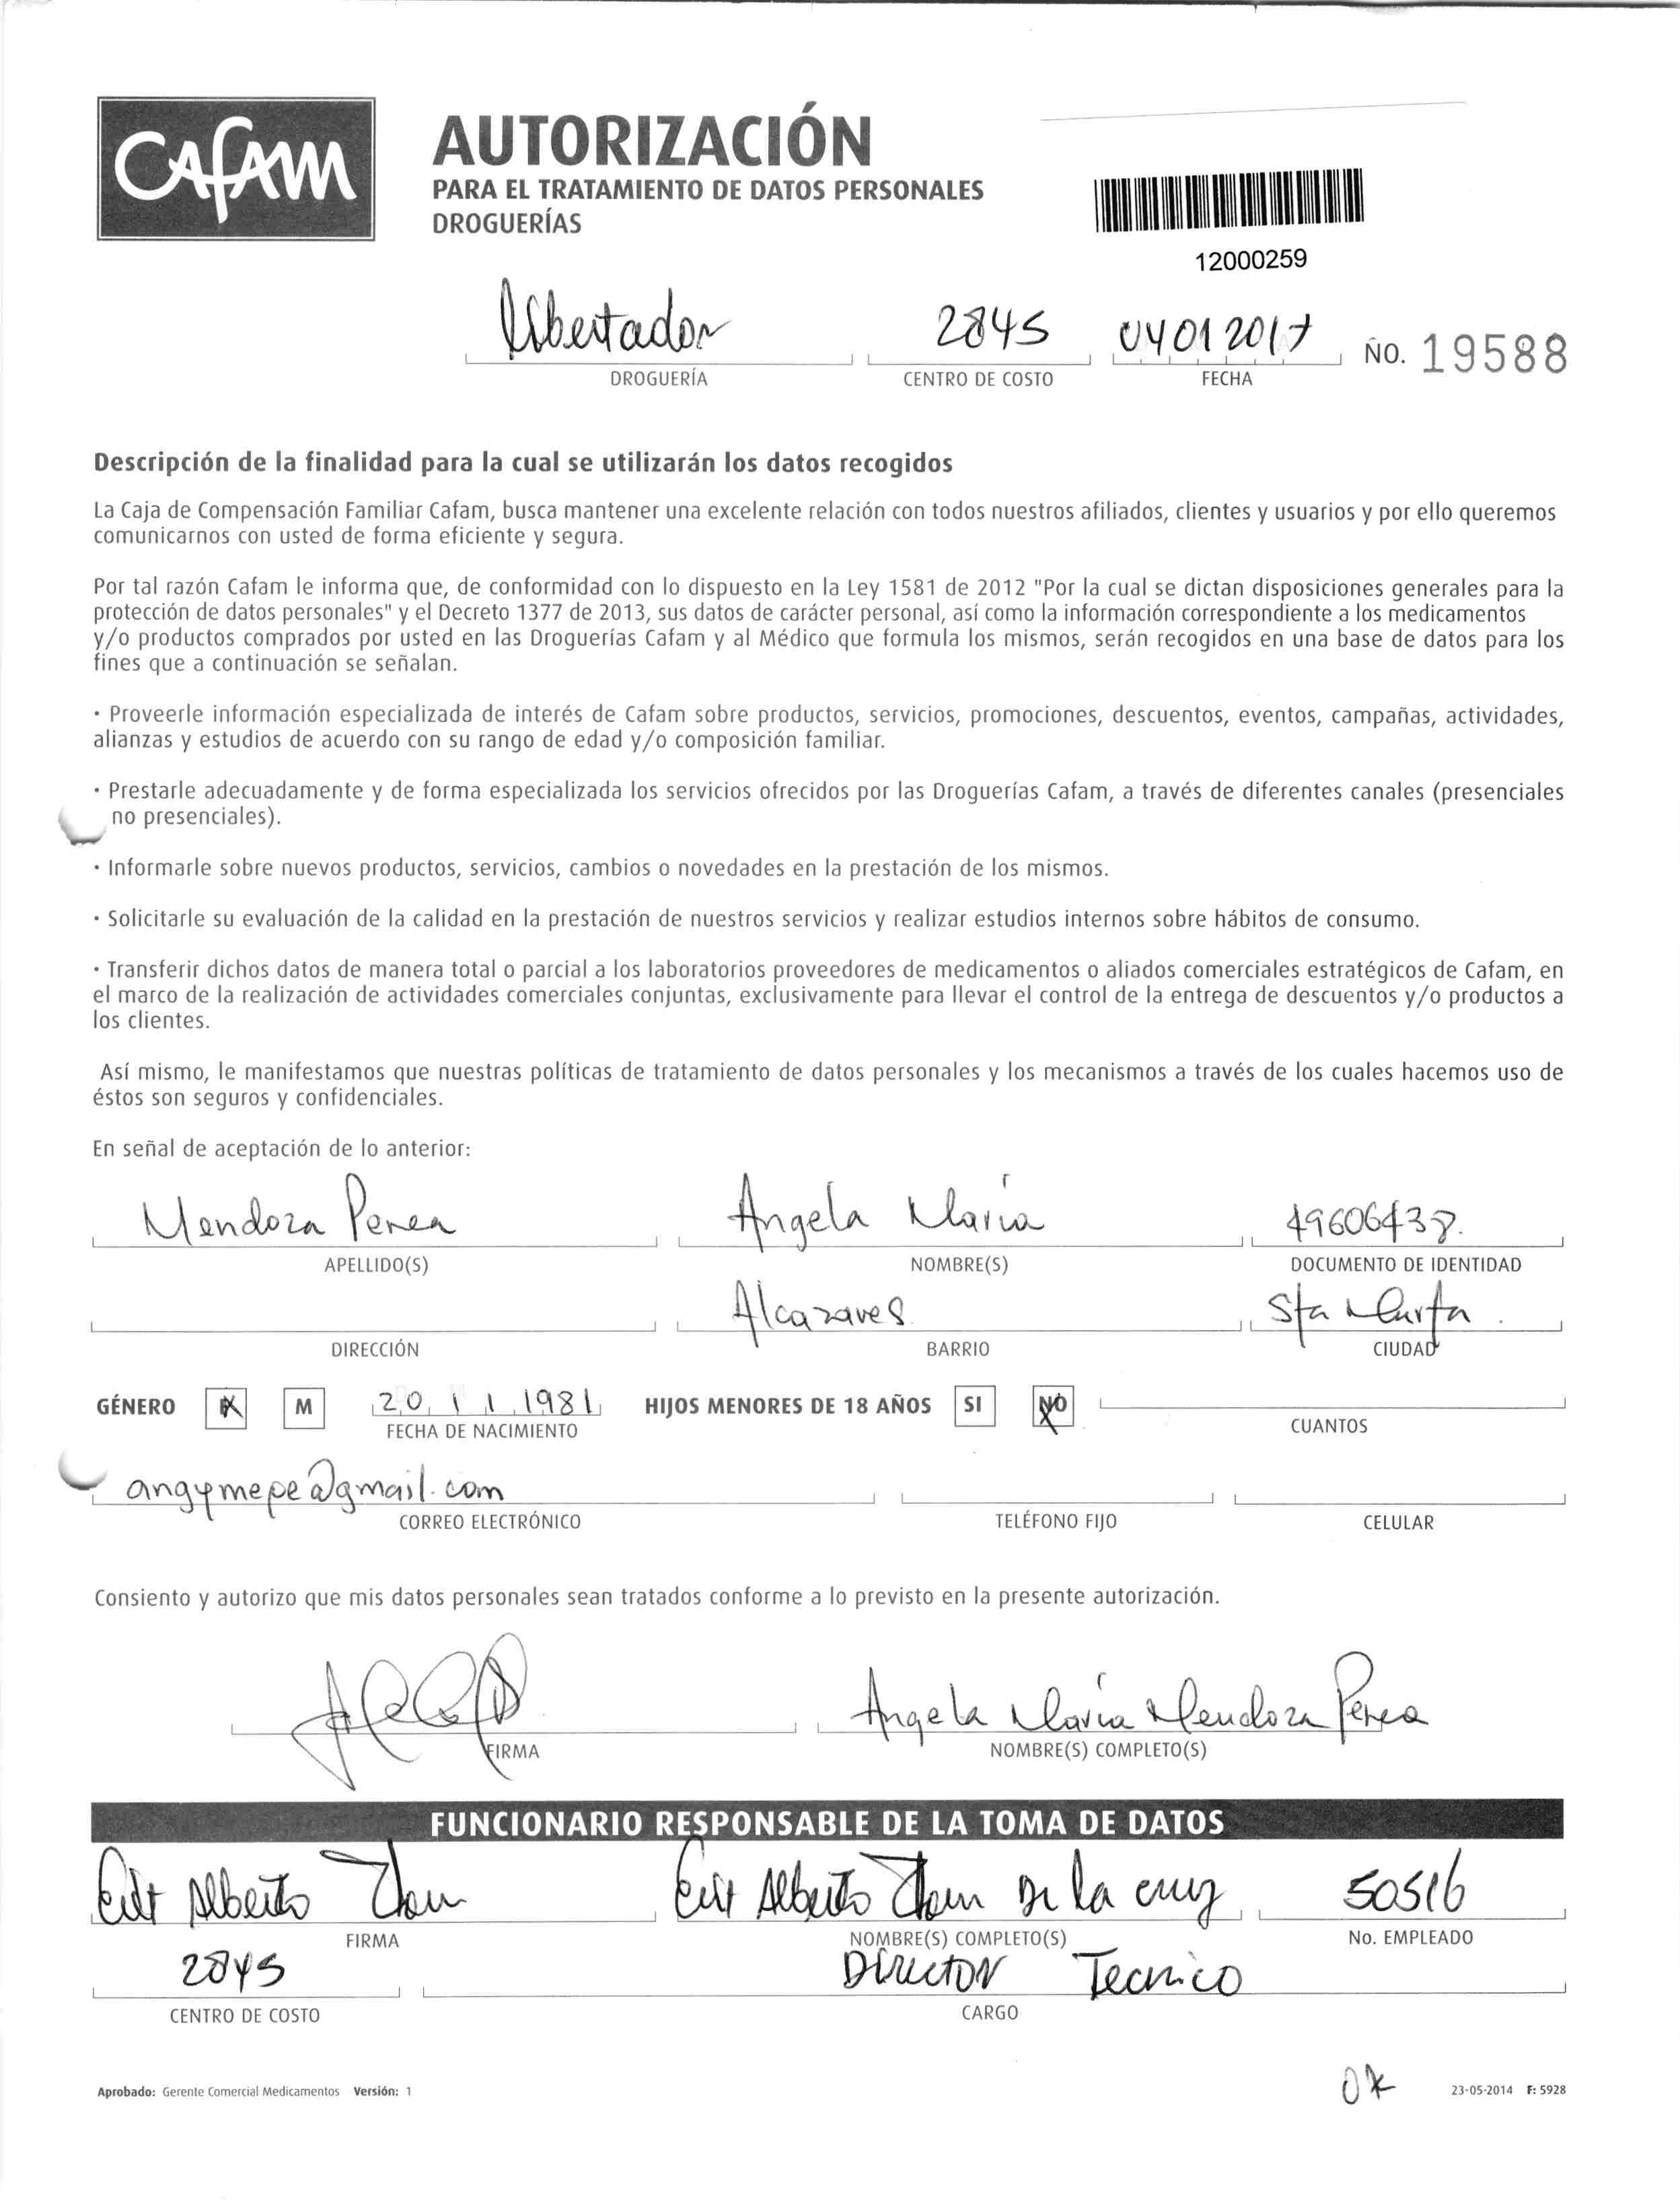 CAFAM
AUTORIZACIÓN
PARA EL TRATAMIENTO DE DATOS PERSONALES
DROGUERÍAS
12000259
libertador 2845 04 01 2017 NO. 19588
DROGUERÍA CENTRO DE COSTO FECHA
Descripción de la finalidad para la cual se utilizarán los datos recogidos
La Caja de Compensación Familiar Cafam, busca mantener una excelente relación con todos nuestros afiliados, clientes y usuarios y por ello queremos
comunicarnos con usted de forma eficiente y segura.
Por tal razón Cafam le informa que, de conformidad con lo dispuesto en la Ley 1581 de 2012 "Por la cual se dictan disposiciones generales para la
protección de datos personales" y el Decreto 1377 de 2013, sus datos de carácter personal, así como la información correspondiente a los medicamentos
y/o productos comprados por usted en las Droguerías Cafam y al Médico que formula los mismos, serán recogidos en una base de datos para los
fines que a continuación se señalan.
· Proveerle información especializada de interés de Cafam sobre productos, servicios, promociones, descuentos, eventos, campañas, actividades,
alianzas y estudios de acuerdo con su rango de edad y/o composición familiar.
· Prestarle adecuadamente y de forma especializada los servicios ofrecidos por las Droguerías Cafam, a través de diferentes canales (presenciales
no presenciales).
· Informarle sobre nuevos productos, servicios, cambios o novedades en la prestación de los mismos.
· Solicitarle su evaluación de la calidad en la prestación de nuestros servicios y realizar estudios internos sobre hábitos de consumo.
· Transferir dichos datos de manera total o parcial a los laboratorios proveedores de medicamentos o aliados comerciales estratégicos de Cafam, en
el marco de la realización de actividades comerciales conjuntas, exclusivamente para llevar el control de la entrega de descuentos y/o productos a
los clientes.
Así mismo, le manifestamos que nuestras políticas de tratamiento de datos personales y los mecanismos a través de los cuales hacemos uso de
éstos son seguros y confidenciales.
En señal de aceptación de lo anterior:
Mendoza Perea Angela María
APELLIDO(S) NOMBRE(S) DOCUMENTO DE IDENTIDAD
Alcazares Sta Marta.
DIRECCIÓN BARRIO CIUDAD
GÉNERO M 20 11 1981 HIJOS MENORES DE 18 AÑOS SI NO
FECHA DE NACIMIENTO CUANTOS
angymepe@gmail.com
CORREO ELECTRÓNICO TELÉFONO FIJO CELULAR
Consiento y autorizo que mis datos personales sean tratados conforme a lo previsto en la presente autorización.
Angela María Mendoza Perea
FIRMA NOMBRE(S) COMPLETO(S)
FUNCIONARIO RESPONSABLE DE LA TOMA DE DATOS
Alberto Alberto De la cruz 50516
FIRMA NOMBRE(S) COMPLETO(S) No. EMPLEADO
2845 Director Tecnico
CENTRO DE COSTO CARGO
Ok
Aprobado: Gerente Comercial Medicamentos Versión: 1 23-05-2014 F: 5928